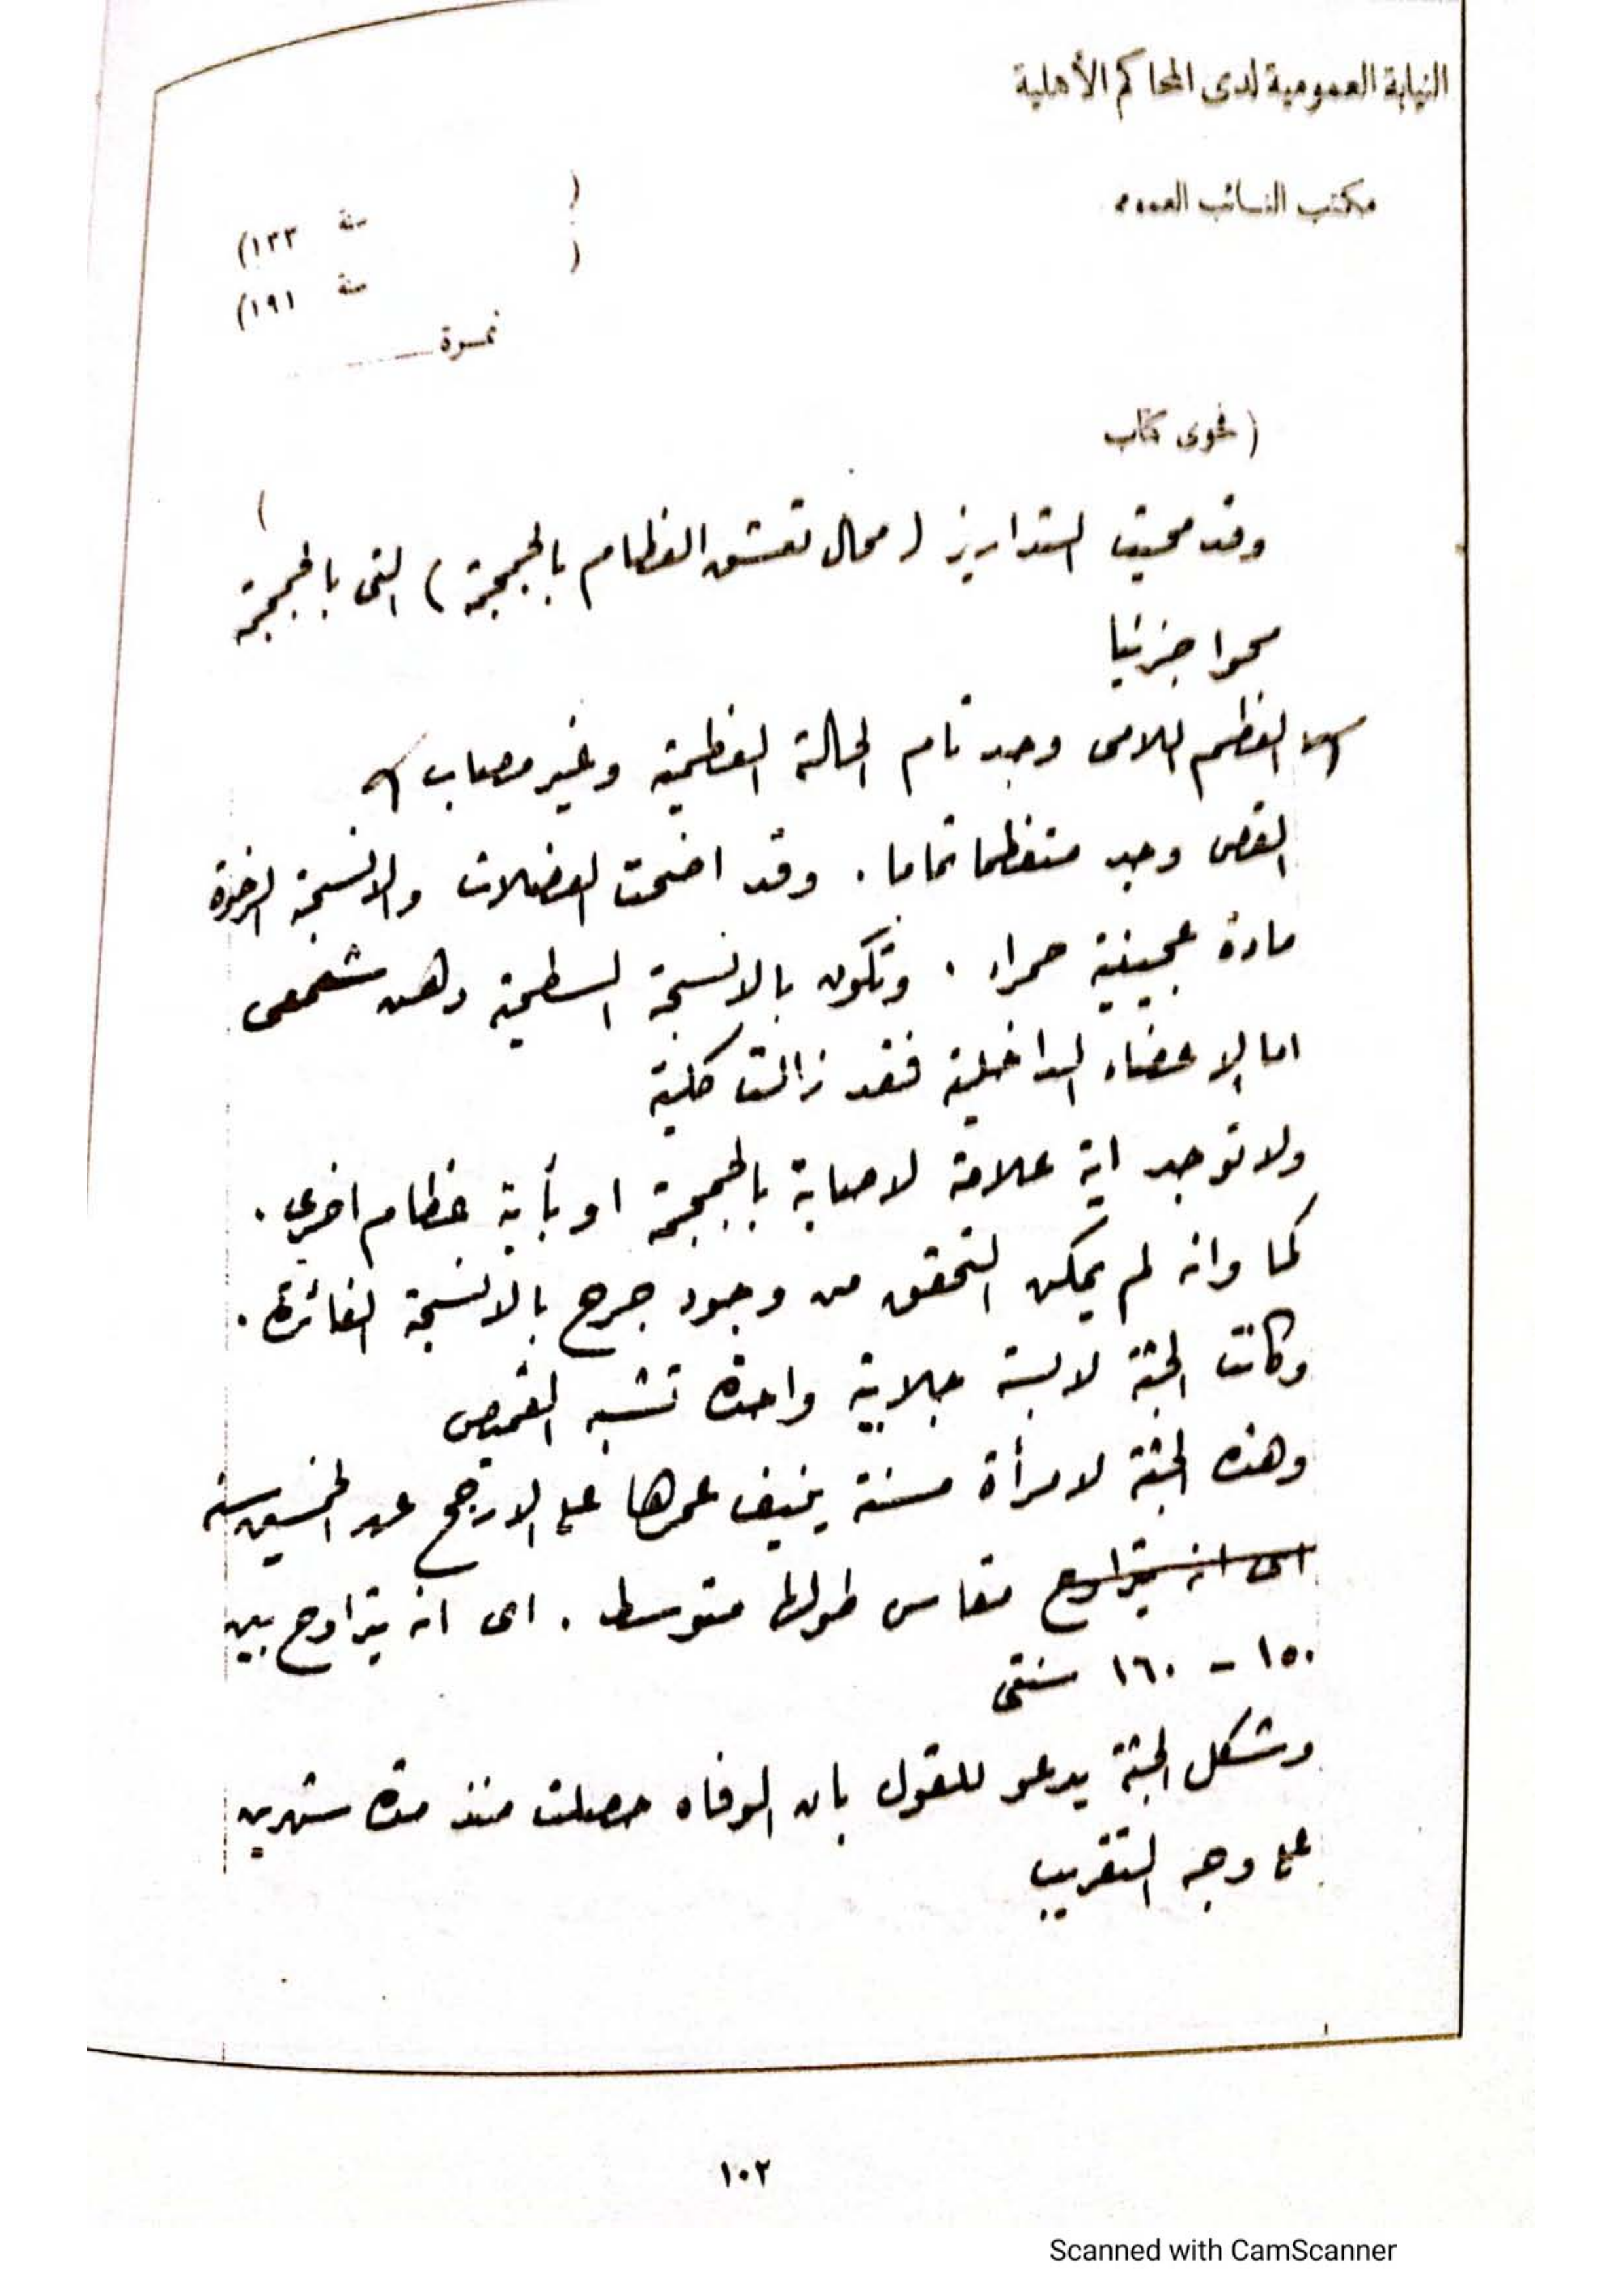 النيابة العمومية لدى المحاكم الأهلية
مكتب النائب العمومى
( سنة ١٣٣)
( سنة ١٩١)
نمرة
( فحوى كتاب
)
وقد محيت التداريز ( محال تعشق العظام بالجمجمة ) التى بالجمجمة
محوا جزئيا
العظم اللامى وجد تام الحالة العظمية وغير مصاب
القص وجد متعظما تماما . وقد اضحت العضلات والانسجة الرخوة
مادة عجينية حمراء . وتكون بالانسجة السطحية دهن شمعى
اما الاعضاء الداخلية فقد زالت كلية
ولا توجد اية علامة لاصابة بالجمجمة او بأية عظام اخرى .
كما وانه لم يمكن التحقق من وجود جرح بالانسجة الغائرة .
وكانت الجثة لابسة جلابية واحدة تشبه القميص
وهذه الجثة لامرأة مسنة ينيف عمرها على الارجح عن الخمسين سنة
اى انه يتراوح مقاس طولها متوسط . اى انه يتراوح بين
١٥٠ - ١٦٠ سنتى
وشكل الجثة يدعو للقول بان الوفاه حصلت منذ مدة شهرين
على وجه التقريب
١٠٢
Scanned with CamScanner